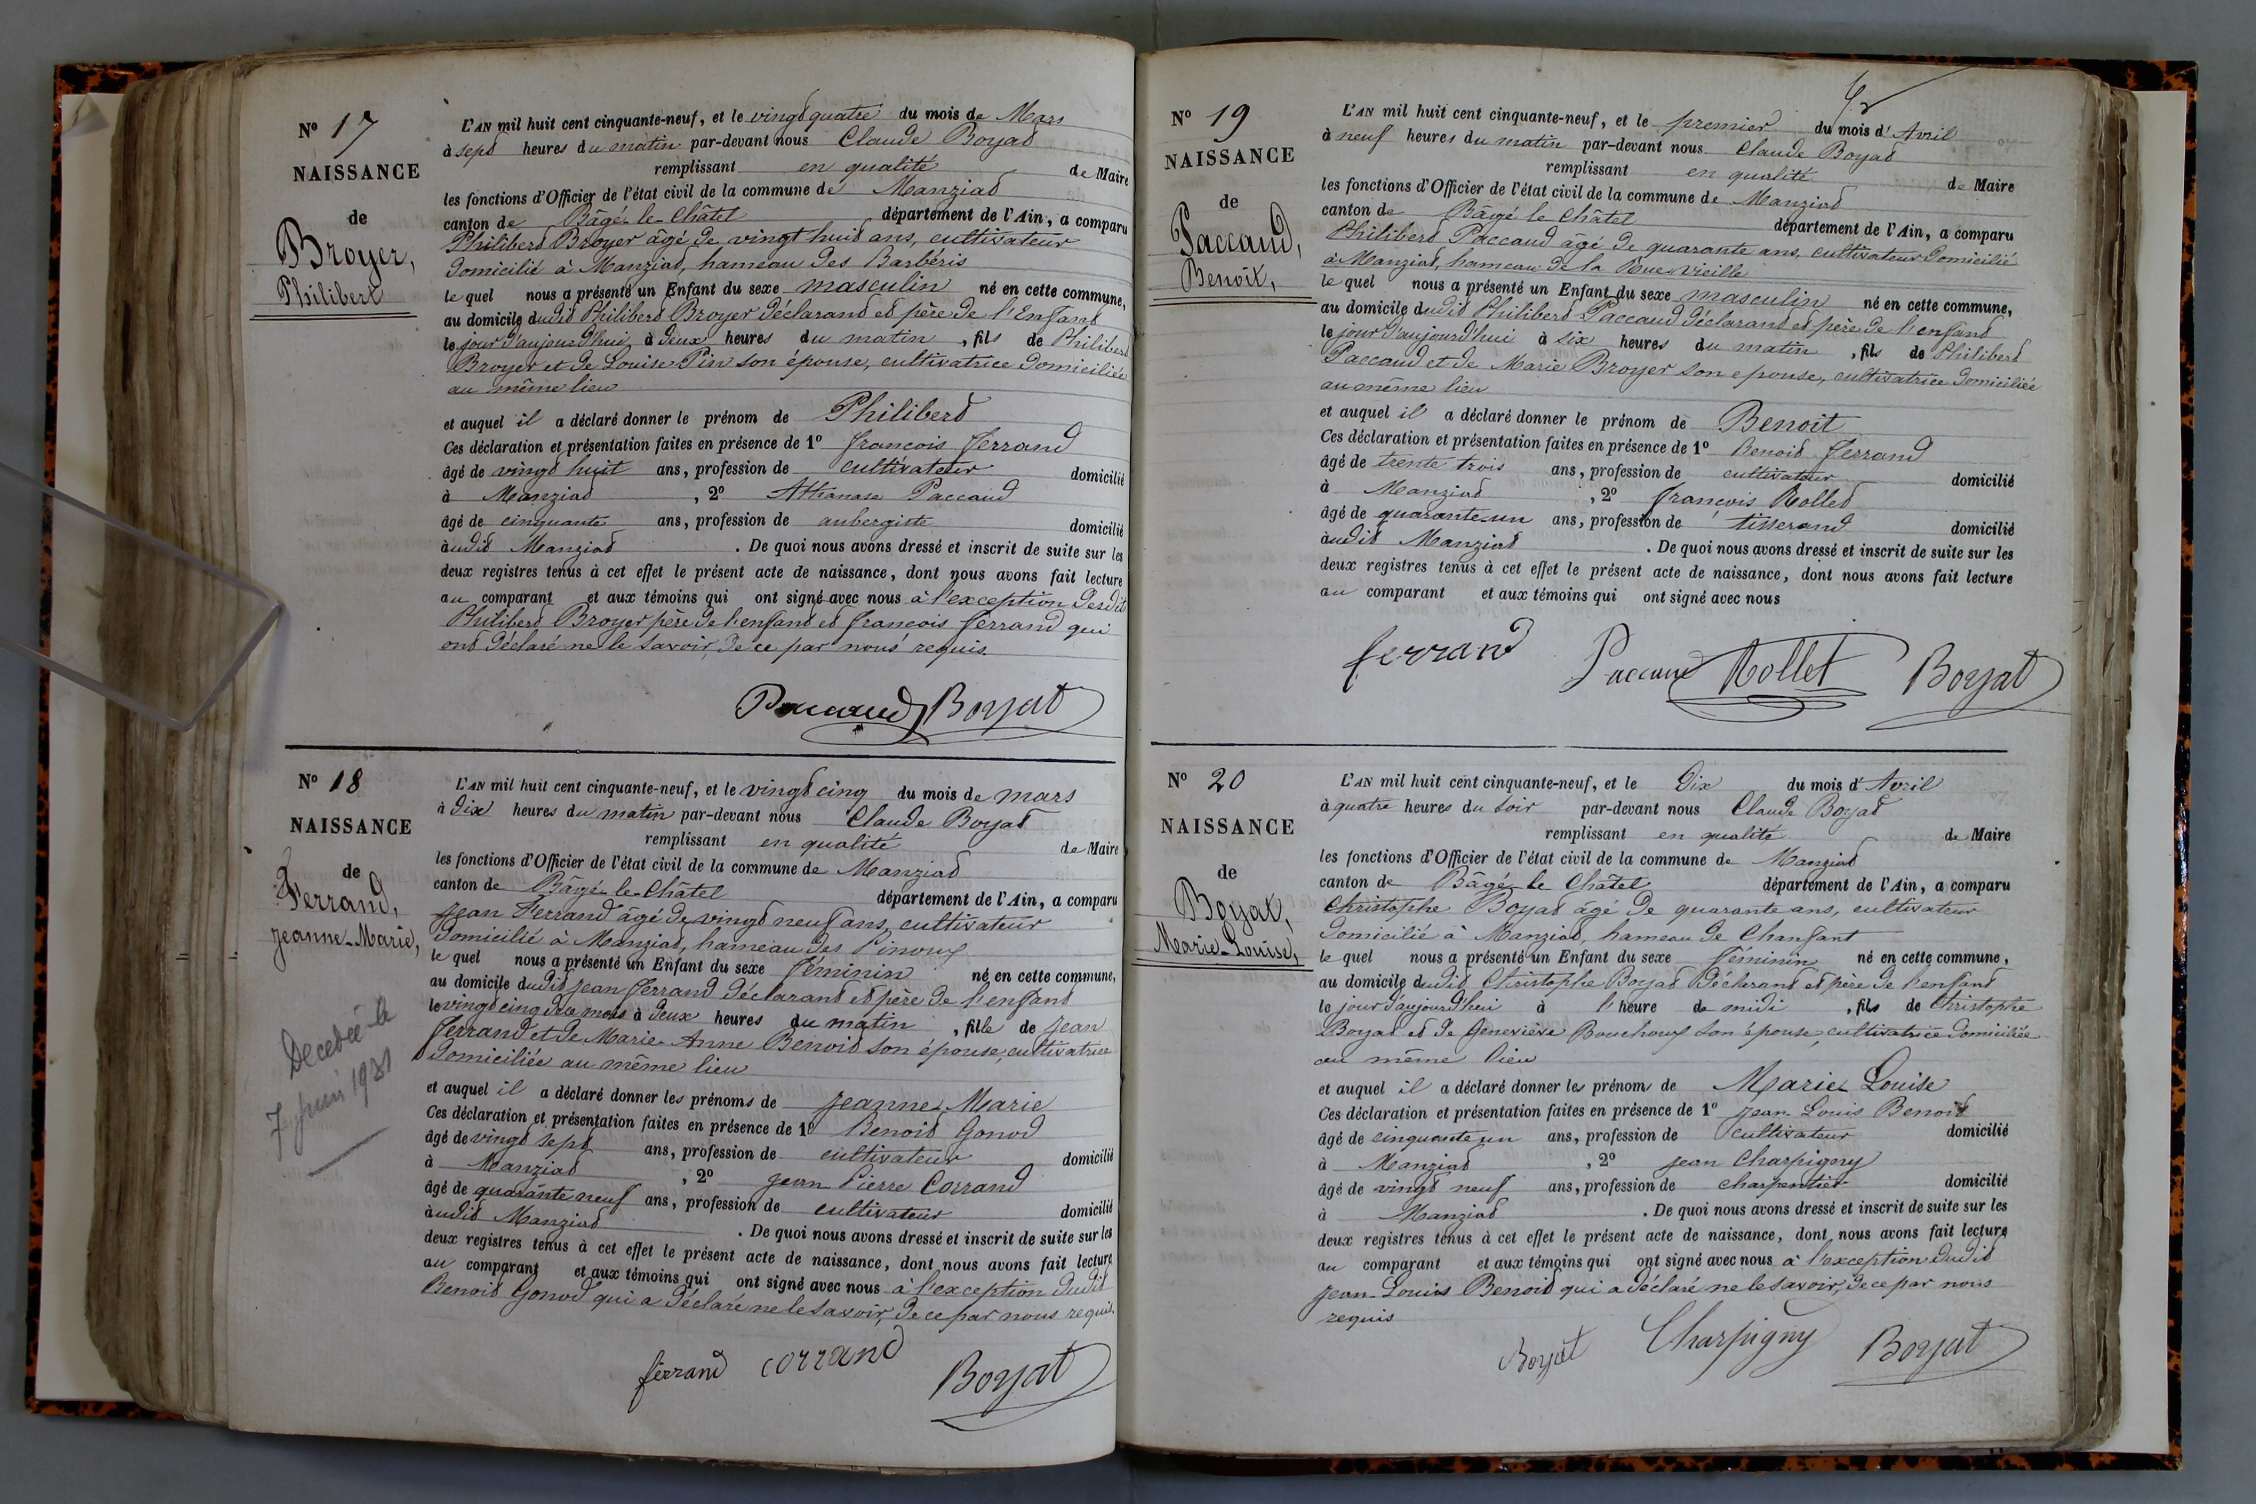 N° 17
NAISSANCE
de
Broyer,
Philibert
L'AN mil huit cent cinquante-neuf, et le vingt quatre du mois de Mars
à sept heures du matin par-devant nous Claude Boyat
remplissant en qualité de Maire
les fonctions d'Officier de l'état civil de la commune de Manziat
canton de Bâgé-le-Châtel département de l'Ain, a comparu
Philibert Broyer âgé de vingt huit ans, cultivateur
domicilié à Manziat, hameau des Barberis
le quel nous a présenté un Enfant du sexe masculin né en cette commune,
au domicile dudit Philibert Broyer déclarant et père de l'Enfant
le jour d'aujourd'hui, à deux heures du matin, fils de Philibert
Broyer et de Louise Pin son épouse, cultivatrice domiciliée
au même lieu
et auquel il a déclaré donner le prénom de Philibert
Ces déclaration et présentation faites en présence de 1° francois ferrand
âgé de vingt huit ans, profession de cultivateur domicilié
à Manziat, 2° Athanase Paccaud
âgé de cinquante ans, profession de aubergiste domicilié
audit Manziat. De quoi nous avons dressé et inscrit de suite sur les
deux registres tenus à cet effet le présent acte de naissance, dont nous avons fait lecture
au comparant et aux témoins qui ont signé avec nous à l'exception desdit
Philibert Broyer père de l'enfant et francois ferrand qui
ont déclaré ne le savoir, de ce par nous requis.
Paccaud Boyat
N° 18
NAISSANCE
de
Ferrand,
jeanne-Marie,
Decedée le
7 juin 1931
L'AN mil huit cent cinquante-neuf, et le vingt cinq du mois de mars
à dix heures du matin par-devant nous Claude Boyat
remplissant en qualité de Maire
les fonctions d'Officier de l'état civil de la commune de Manziat
canton de Bâgé-le-Châtel département de l'Ain, a comparu
jean Ferrand âgé de vingt neuf ans, cultivateur
domicilié à Manziat, hameau des Pinoux
le quel nous a présenté un Enfant du sexe féminin né en cette commune,
au domicile dudit jean ferrand déclarant et père de l'enfant
le vingt cinq de ce mois à deux heures du matin, fille de jean
ferrand et de Marie-Anne Benoit son épouse, cultivatrice
domiciliée au même lieu
et auquel il a déclaré donner les prénoms de jeanne-Marie
Ces déclaration et présentation faites en présence de 1° Benoit Gonod
âgé de vingt sept ans, profession de cultivateur domicilié
à Manziat, 2° jean Pierre Corrand
âgé de quarante neuf ans, profession de cultivateur domicilié
audit Manziat. De quoi nous avons dressé et inscrit de suite sur les
deux registres tenus à cet effet le présent acte de naissance, dont nous avons fait lecture
au comparant et aux témoins qui ont signé avec nous à l'exception dudit
Benoit Gonod qui a déclaré ne le savoir, de ce par nous requis.
ferrand corrand Boyat
N° 19
NAISSANCE
de
Paccaud,
Benoit,
L'AN mil huit cent cinquante-neuf, et le premier du mois d'Avril
à neuf heures du matin par-devant nous Claude Boyat
remplissant en qualité de Maire
les fonctions d'Officier de l'état civil de la commune de Manziat
canton de Bâgé le Châtel département de l'Ain, a comparu
Philibert Paccaud âgé de quarante ans, cultivateur domicilié
à Manziat, hameau de la Rue-vieille
le quel nous a présenté un Enfant du sexe masculin né en cette commune,
au domicile dudit Philibert Paccaud déclarant et père de l'enfant
le jour d'aujourd'hui à six heures du matin, fils de Philibert
Paccaud et de Marie Broyer son epouse, cultivatrice domiciliée
au même lieu
et auquel il a déclaré donner le prénom de Benoit
Ces déclaration et présentation faites en présence de 1° Benoit Ferrand
âgé de trente trois ans, profession de cultivateur domicilié
à Manziat, 2° francois Rollet
âgé de quarante-un ans, profession de tisserand domicilié
audit Manziat. De quoi nous avons dressé et inscrit de suite sur les
deux registres tenus à cet effet le présent acte de naissance, dont nous avons fait lecture
au comparant et aux témoins qui ont signé avec nous
ferrand Paccaud Rollet Boyat
N° 20
NAISSANCE
de
Boyat,
Marie-Louise,
L'AN mil huit cent cinquante-neuf, et le Dix du mois d'Avril
à quatre heures du soir par-devant nous Claude Boyat
remplissant en qualité de Maire
les fonctions d'Officier de l'état civil de la commune de Manziat
canton de Bâgé-le Châtel département de l'Ain, a comparu
Christophe Boyat âgé de quarante ans, cultivateur
domicilié à Manziat, hameau de Chanfant
le quel nous a présenté un Enfant du sexe féminin né en cette commune,
au domicile dudit Christophe Boyat déclarant et père de l'enfant
le jour d'aujourd'hui à l'heure de midi, fils de Christophe
Boyat et de Geneviève Bouchoux son épouse, cultivatrice domiciliée
au même lieu
et auquel il a déclaré donner les prénoms de Marie Louise
Ces déclaration et présentation faites en présence de 1° jean-Louis Benoit
âgé de cinquante un ans, profession de cultivateur domicilié
à Manziat, 2° jean Charpigny
âgé de vingt neuf ans, profession de charpentier domicilié
à Manziat. De quoi nous avons dressé et inscrit de suite sur les
deux registres tenus à cet effet le présent acte de naissance, dont nous avons fait lecture
au comparant et aux témoins qui ont signé avec nous à l'exception dudit
jean-Louis Benoit qui a déclaré ne le savoir, de ce par nous
requis
Boyat Charpigny Boyat